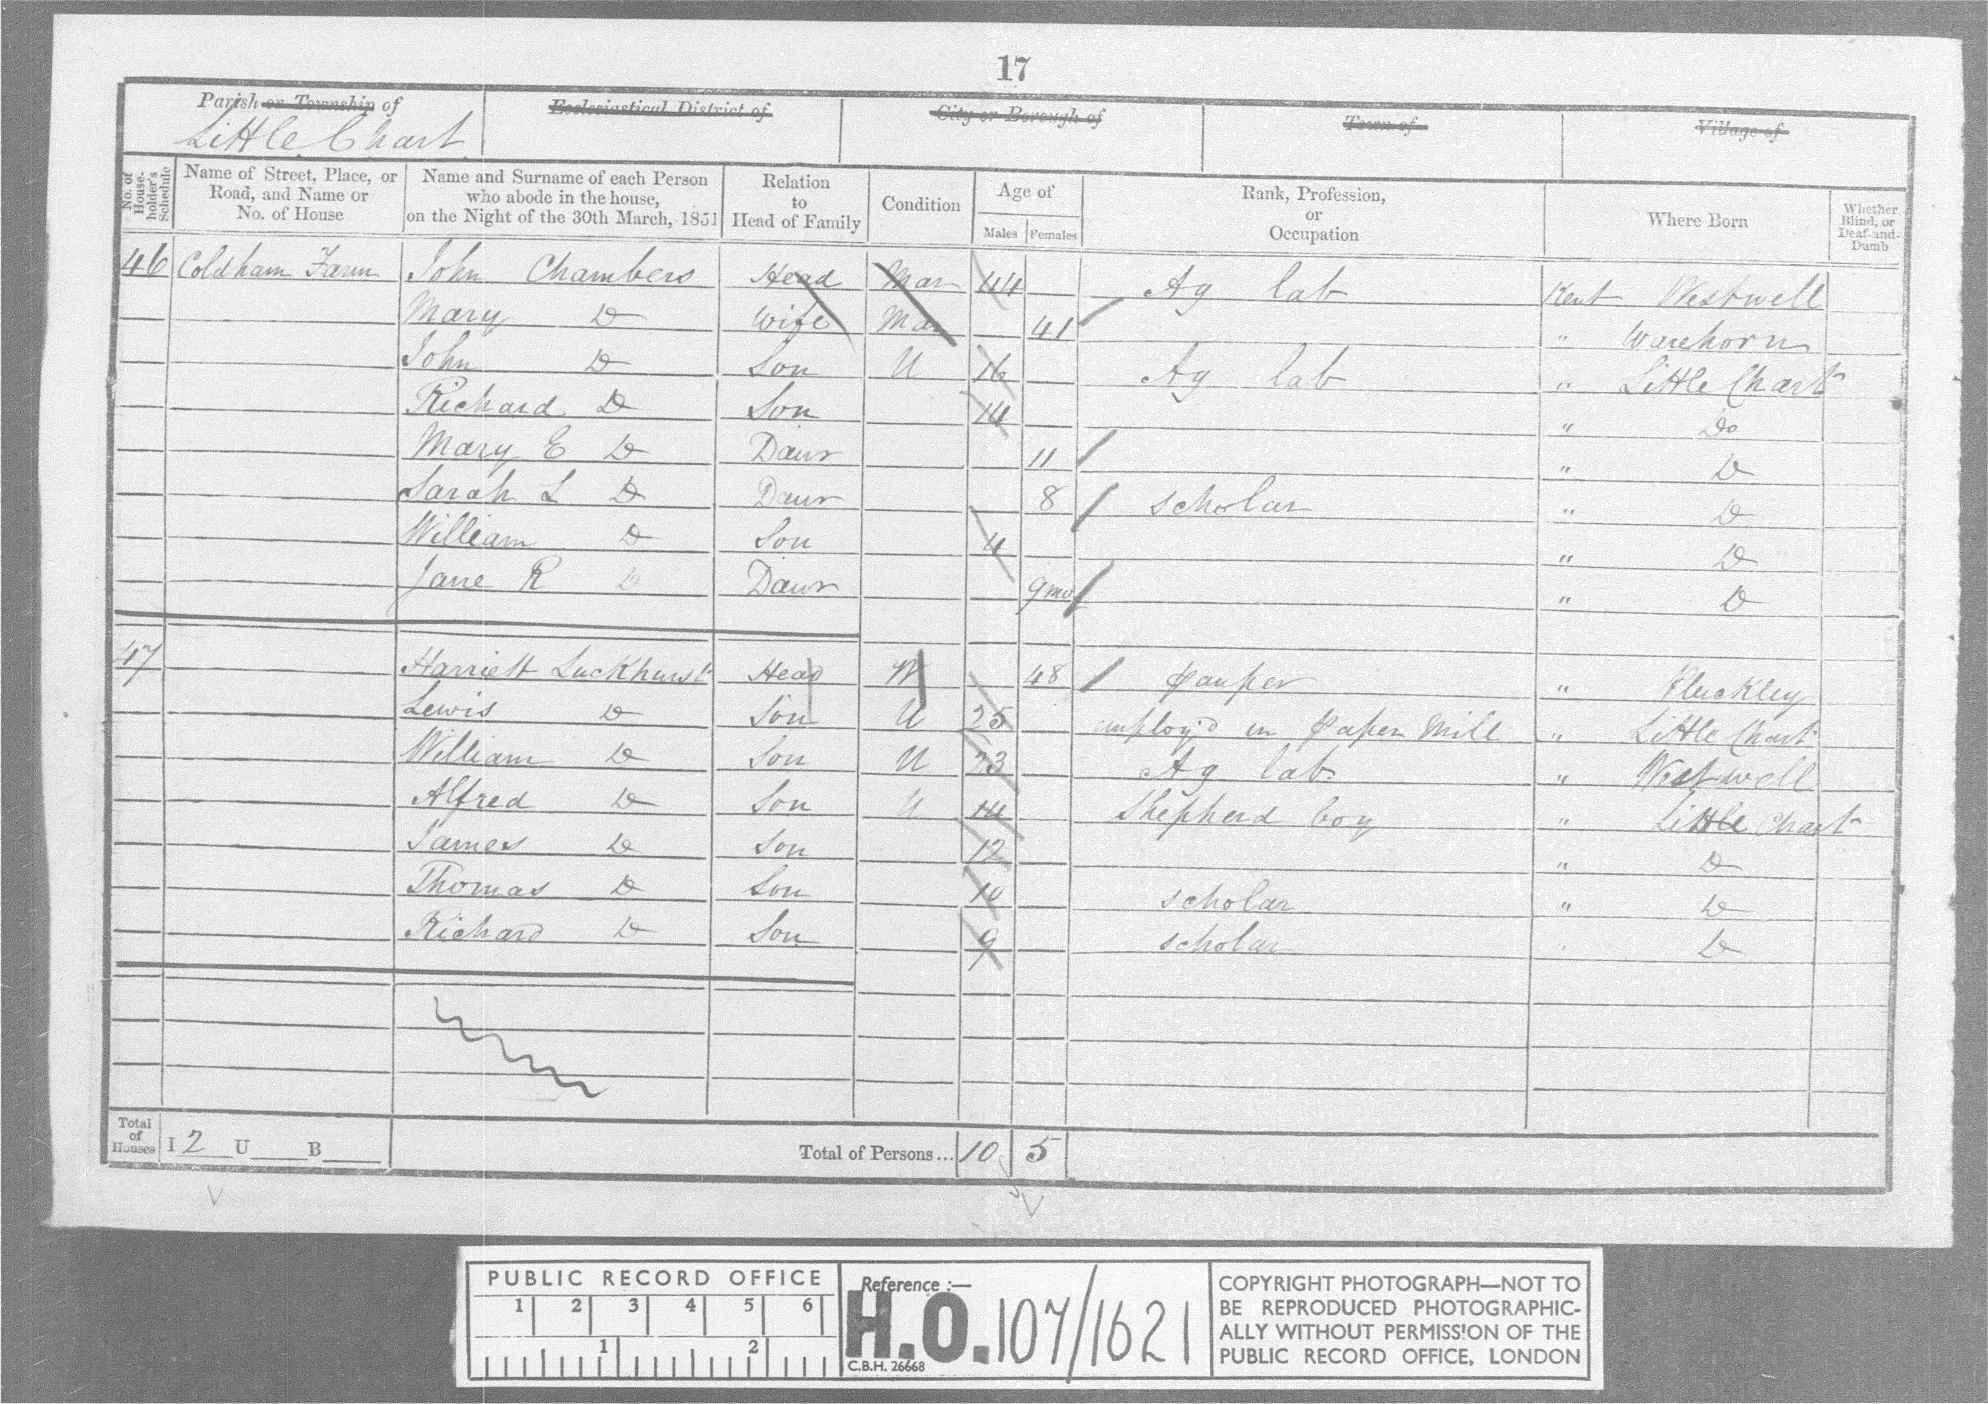 17
Parish or Township of
Ecclesiastical District of
City or Borough of
Town of
Village of
Little Chart
No. of House-holder's Schedule
Name of Street, Place, or Road, and Name or No. of House
Name and Surname of each Person who abode in the house, on the Night of the 30th March, 1851
Relation to Head of Family
Condition
Age of
Males
Females
Rank, Profession, or Occupation
Where Born
Whether Blind, or Deaf-and-Dumb
46 Coldham Farm John Chambers Head Mar 44 Ag lab Kent Westwell
Mary Do Wife Mar 41 " Warehorn
John Do Son U 16 Ag lab " Little Chart
Richard Do Son 14 " Do
Mary E Do Daur 11 " Do
Sarah L Do Daur 8 scholar " Do
William Do Son 4 " Do
Jane R Do Daur 9 mo " Do
47 Harriett Luckhurst Head W 48 Pauper " Pluckley
Lewis Do Son U 25 employ'd in Paper Mill " Little Chart
William Do Son U 23 Ag lab " Westwell
Alfred Do Son U 14 Shepherd boy " Little Chart
James Do Son 12 " Do
Thomas Do Son 10 scholar " Do
Richard Do Son 9 scholar " Do
Total of Houses I 2 U B Total of Persons... 10 5
PUBLIC RECORD OFFICE
1 2 3 4 5 6
1 2
Reference :—
H.O. 107/1621
C.B.H. 26668
COPYRIGHT PHOTOGRAPH—NOT TO
BE REPRODUCED PHOTOGRAPHIC-
ALLY WITHOUT PERMISSION OF THE
PUBLIC RECORD OFFICE, LONDON